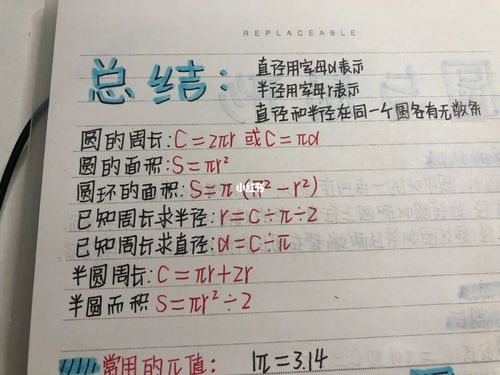 REPLACEABLE
总结:
直径用字母d表示
半径用字母r表示
直径和半径在同一个圆各有无数条
圆的周长:C=2πr 或C=πd
圆的面积:S=πr²
圆环的面积:S=π(R²-r²)
小红书
已知周长求半径:r=C÷π÷2
已知周长求直径:d=C÷π
半圆周长:C=πr+2r
半圆面积 S=πr²÷2
常用的π值: 1π=3.14